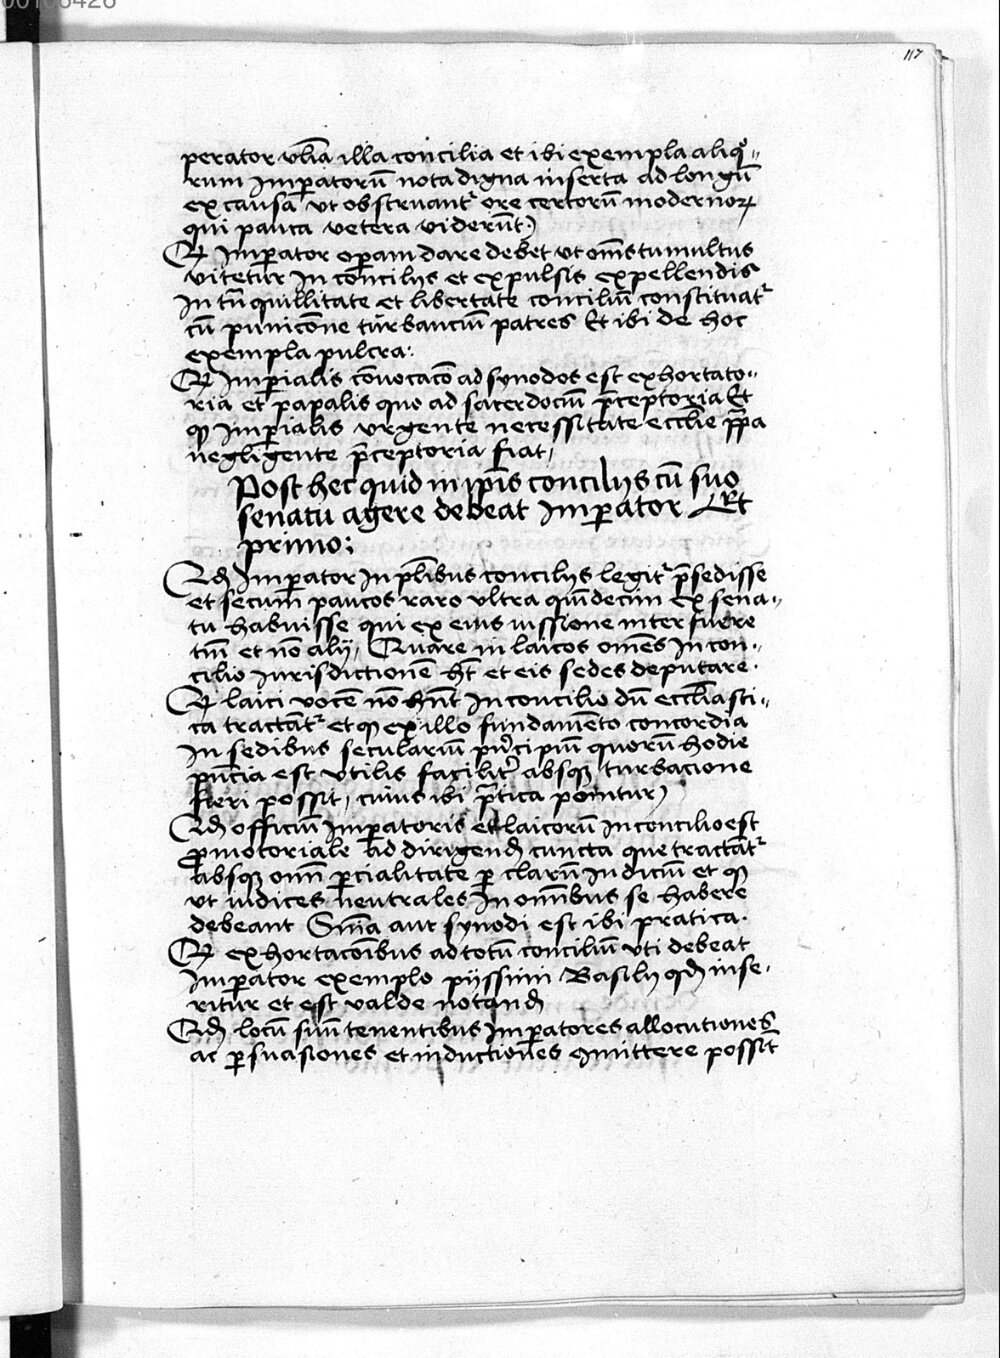 00106426
117
perator vl̄ia illa concilia et ibi exempla aliq̊ꝫ„
rum Imp̄atorū nota digna inserta ad longū
ex causa vt obstruant᷑ ore certorū modernoꝝ
qui pauca vetera viderūt)
Qꝫ Imp̄ator operam dare debet vt om̄s tumultus
vitetur In concilijs et expulsis expellendis
In tn̄quillitate et libertate conciliū constituat᷑
cū punicōne turbanciū patres Et ibi de hoc
exempla pulcra:
Qꝫ Imp̄ialis cōuocacō ad synodos est exhortato„
ria et papalis quo ad sacerdociū p̄ceptoria Et
qꝫ Imp̄ialis vrgente necessitate eccl̄ie pp̄a
negligente p̄ceptoria fiat/
Post hec quid in ip̄is concilijs cū suo
senatu agere debeat Imp̄ator Et
primo:
Qd̄ Imp̄ator In pl̄ibus concilijs legit᷑ p̄sedisse
et secum paucos raro vltra quīdecim ex sena„
tu habuisse qui ex eius iussione interfuere
tm̄ et nō alij/ Quare in laicos om̄es In con„
cilio Iurisdictionē h̄t et eis sedes deputare.
Qꝫ laici vocē nō hn̄t In concilio dū eccl̄iasti„
ca tractāt᷑ et qꝫ ex illo fundamēto concordia
In sedibus seculariū pn̄cipiū quorū hodie
pn̄cia est vtilis facilit᷑ absqꝫ turbacione
fieri possit/ cuius ibi p̄tica ponitur)
Qd̄ officiū Imp̄atoris et laicorū In concilio est
ꝓmotoriale ad dirigend̄ cuncta que tractāt᷑
absqꝫ om̄i ꝑcialitate ꝑ clarū Iudiciū et qꝫ
vt iudices neutrales In om̄ibus se habere
debeant Sn̄ia aut synodi est ibi pratica.
Qꝫ exhortacōibus ad totū conciliū vti debeat
Imp̄ator exemplo pijssimi Basilij qd̄ inse„
ritur et est valde notand̄
Qd̄ locū suū tenentibus Imp̄atores allocutiones
ac ꝑsuasiones et inductiones ꝯmittere possit